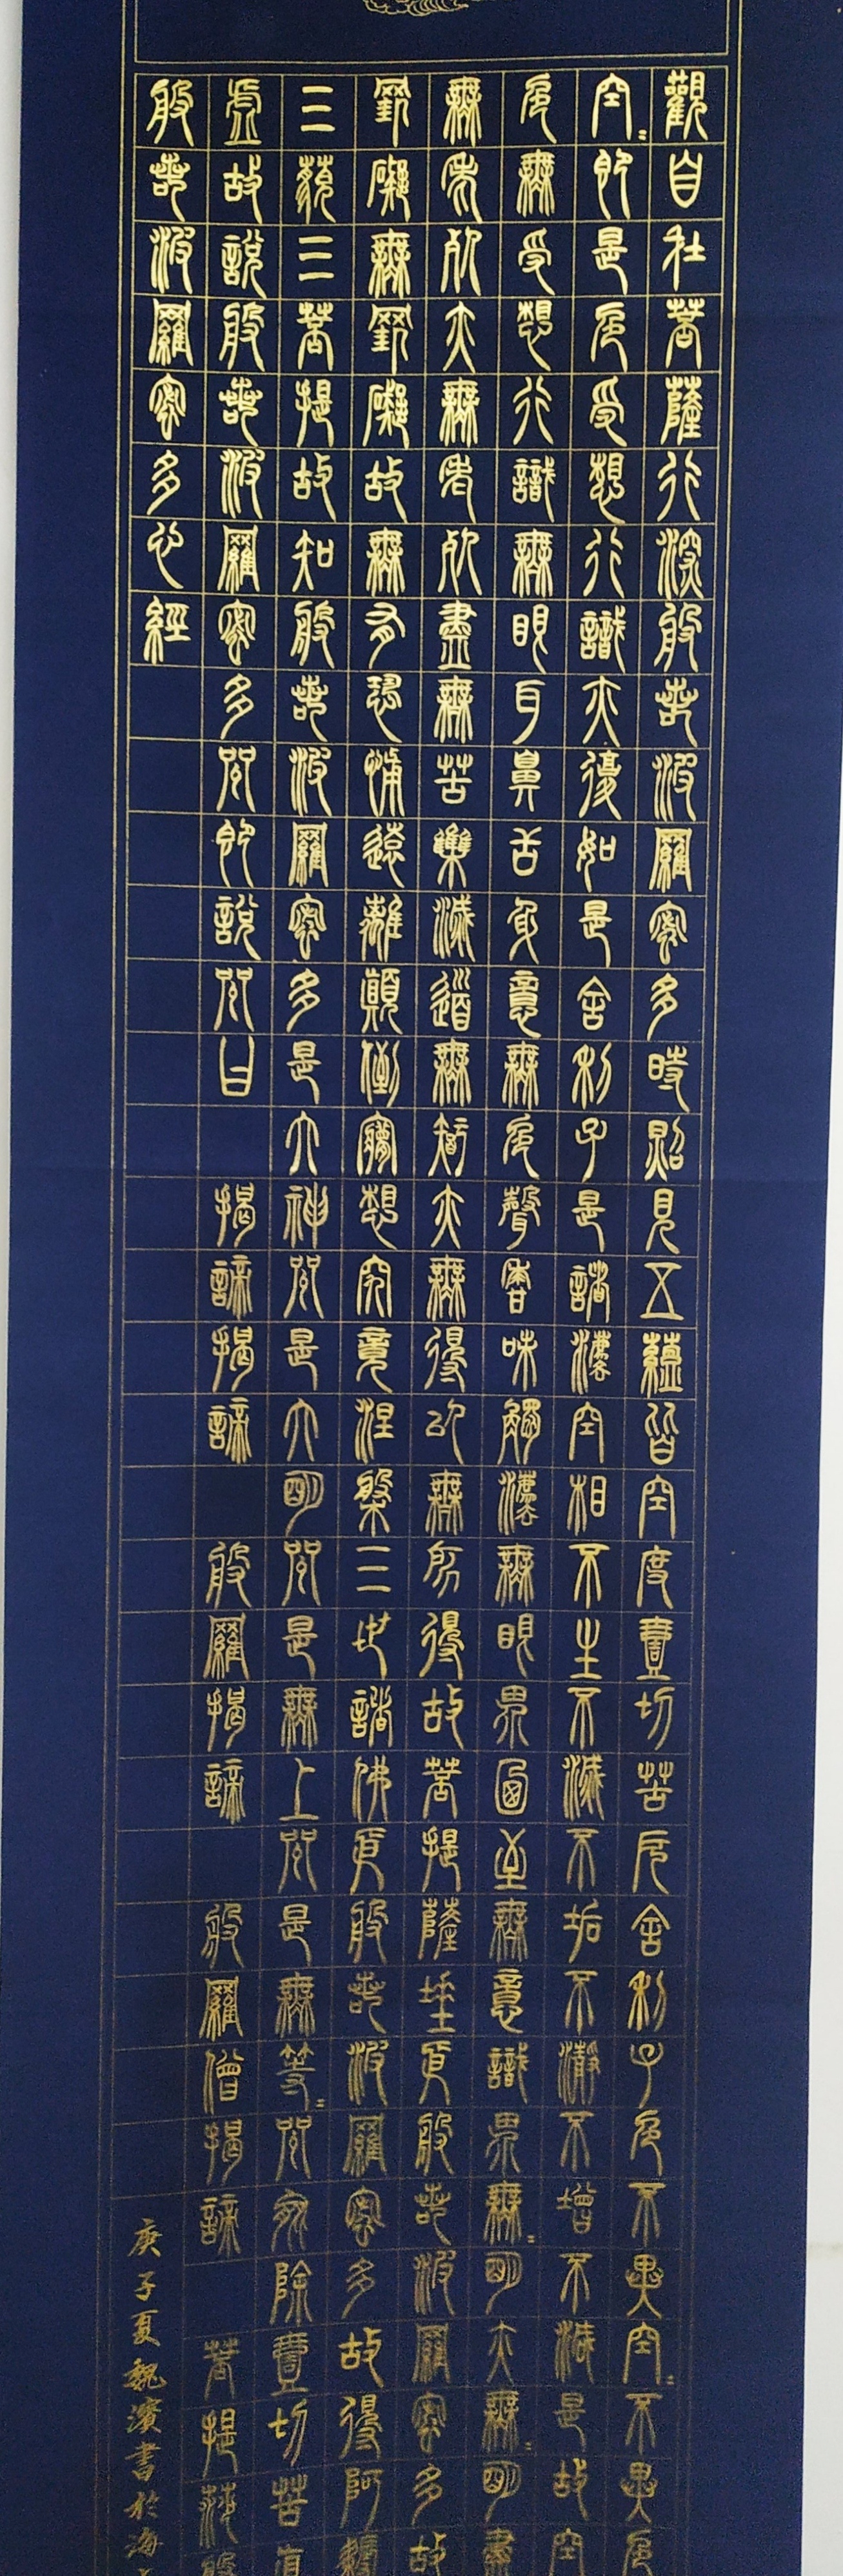 觀自在菩薩行深般若波羅蜜多時照見五蘊皆空度壹切苦厄舍利子色不異空=不異色
空=即是色受想行識亦復如是舍利子是諸灋空相不生不滅不垢不瀞不增不減是故空
色無受想行識無眼耳鼻舌身意無色聲香味觸灋無眼界迺至無意識界無=明亦無=明盡
無老死亦無老死盡無苦集滅道無智亦無得以無所得故菩提薩埵依般若波羅蜜多故
罣礙無罣礙故無有恐怖遠離顛倒夢想究竟涅槃三世諸佛依般若波羅蜜多故得阿耨
三藐三菩提故知般若波羅蜜多是大神咒是大明咒是無上咒是無等=咒能除壹切苦真
虛故說般若波羅蜜多咒即說咒曰 揭諦揭諦 般羅揭諦 般羅僧揭諦 菩提莎般
般若波羅蜜多心經
庚子夏魏濱書於海